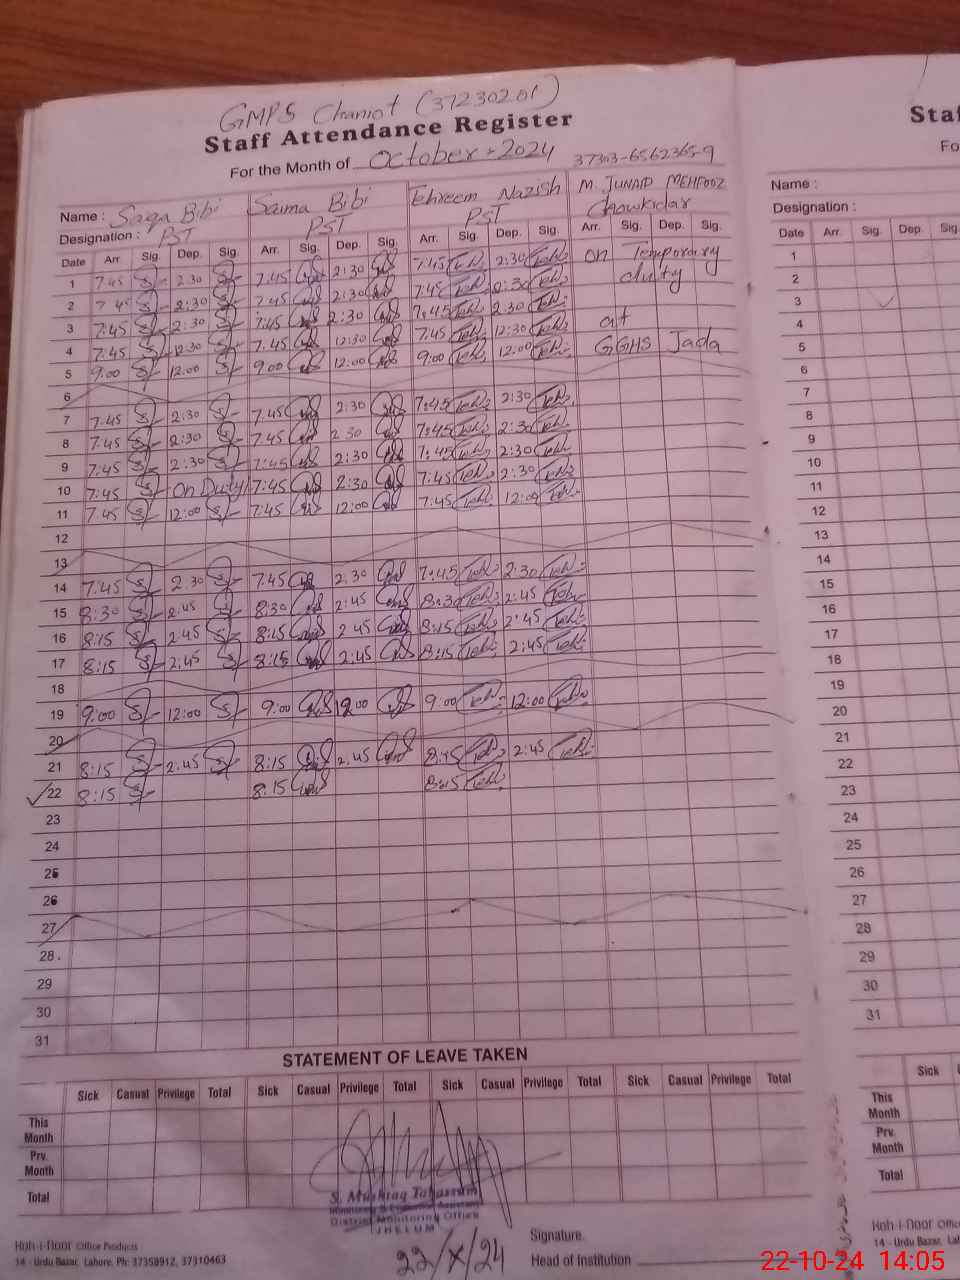 GMPS Chaniot (37230201)
Staff Attendance Register
For the Month of October - 2024 37303-6562365-9
Name : Saqa Bibi Saima Bibi Tehreem Nazish M. JUNAID MEHFOOZ
Designation : PST PST PST Chowkidar
Date Arr. Sig. Dep. Sig. Arr. Sig. Dep. Sig. Arr. Sig. Dep. Sig. Arr. Sig. Dep. Sig.
1 7:45 2:30 7:45 2:30 7:45 2:30 on Temporary
2 7:45 2:30 7:45 2:30 7:45 2:30 duty
3 7:45 2:30 7:45 2:30 7:45 2:30
4 7:45 12:30 7:45 12:30 7:45 12:30 at
5 9:00 12:00 9:00 12:00 9:00 12:00 GGHS Jada
6
7 7:45 2:30 7:45 2:30 7:45 2:30
8 7:45 2:30 7:45 2 30 7:45 2:30
9 7:45 2:30 7:45 2:30 7:45 2:30
10 7:45 On Duty 7:45 2:30 7:45 2:30
11 7:45 12:00 7:45 12:00 7:45 12:00
12
13
14 7:45 2.30 7:45 2.30 7:45 2:30
15 8:30 2:45 8:30 2:45 8:30 2:45
16 8:15 2:45 8:15 2 45 8:15 2:45
17 8:15 2:45 8:15 2:45 8:15 2:45
18
19 9:00 12:00 9:00 1200 9:00 12:00
20
21 8:15 2.45 8:15 2.45 8:15 2:45
22 8:15 8:15 8:15
23
24
25
26
27
28
29
30
31
STATEMENT OF LEAVE TAKEN
Sick Casual Privilege Total Sick Casual Privilege Total Sick Casual Privilege Total Sick Casual Privilege Total
This Month
Prv. Month
Total
S. Mushtaq Tabassum
Monitoring & Assistant
District Monitoring Office
JHELUM
22/X/24
Signature.
Head of Institution
Hoh-i-noor Office Products
14 - Urdu Bazar, Lahore. Ph: 37358912, 37310463
Staf
Fo
Name :
Designation :
Date Arr. Sig. Dep. Sig.
1
2
3
4
5
6
7
8
9
10
11
12
13
14
15
16
17
18
19
20
21
22
23
24
25
26
27
28
29
30
31
Sick
This Month
Prv. Month
Total
Hoh-i-noor Offic
14 - Urdu Bazar, Lah
22-10-24 14:05